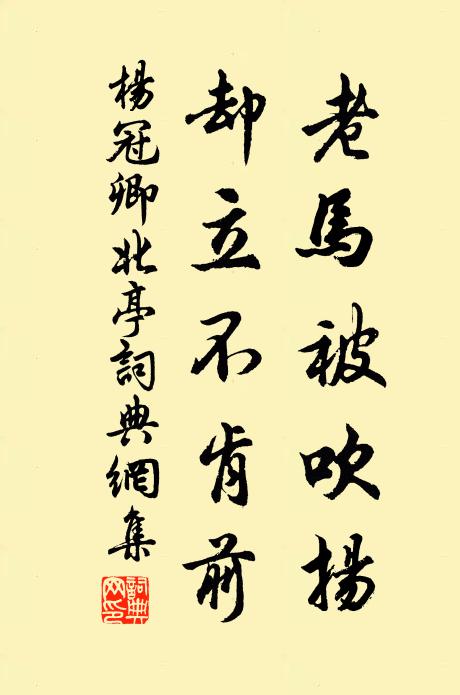 老馬被吹揚
却立不肯前
楊冠卿北亭詞典網集
詞典网印